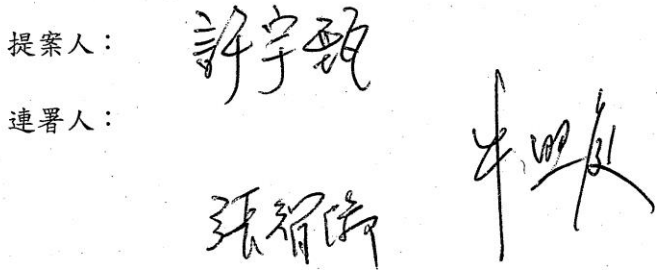 提案人： 許宇甄
連署人：
張智倫